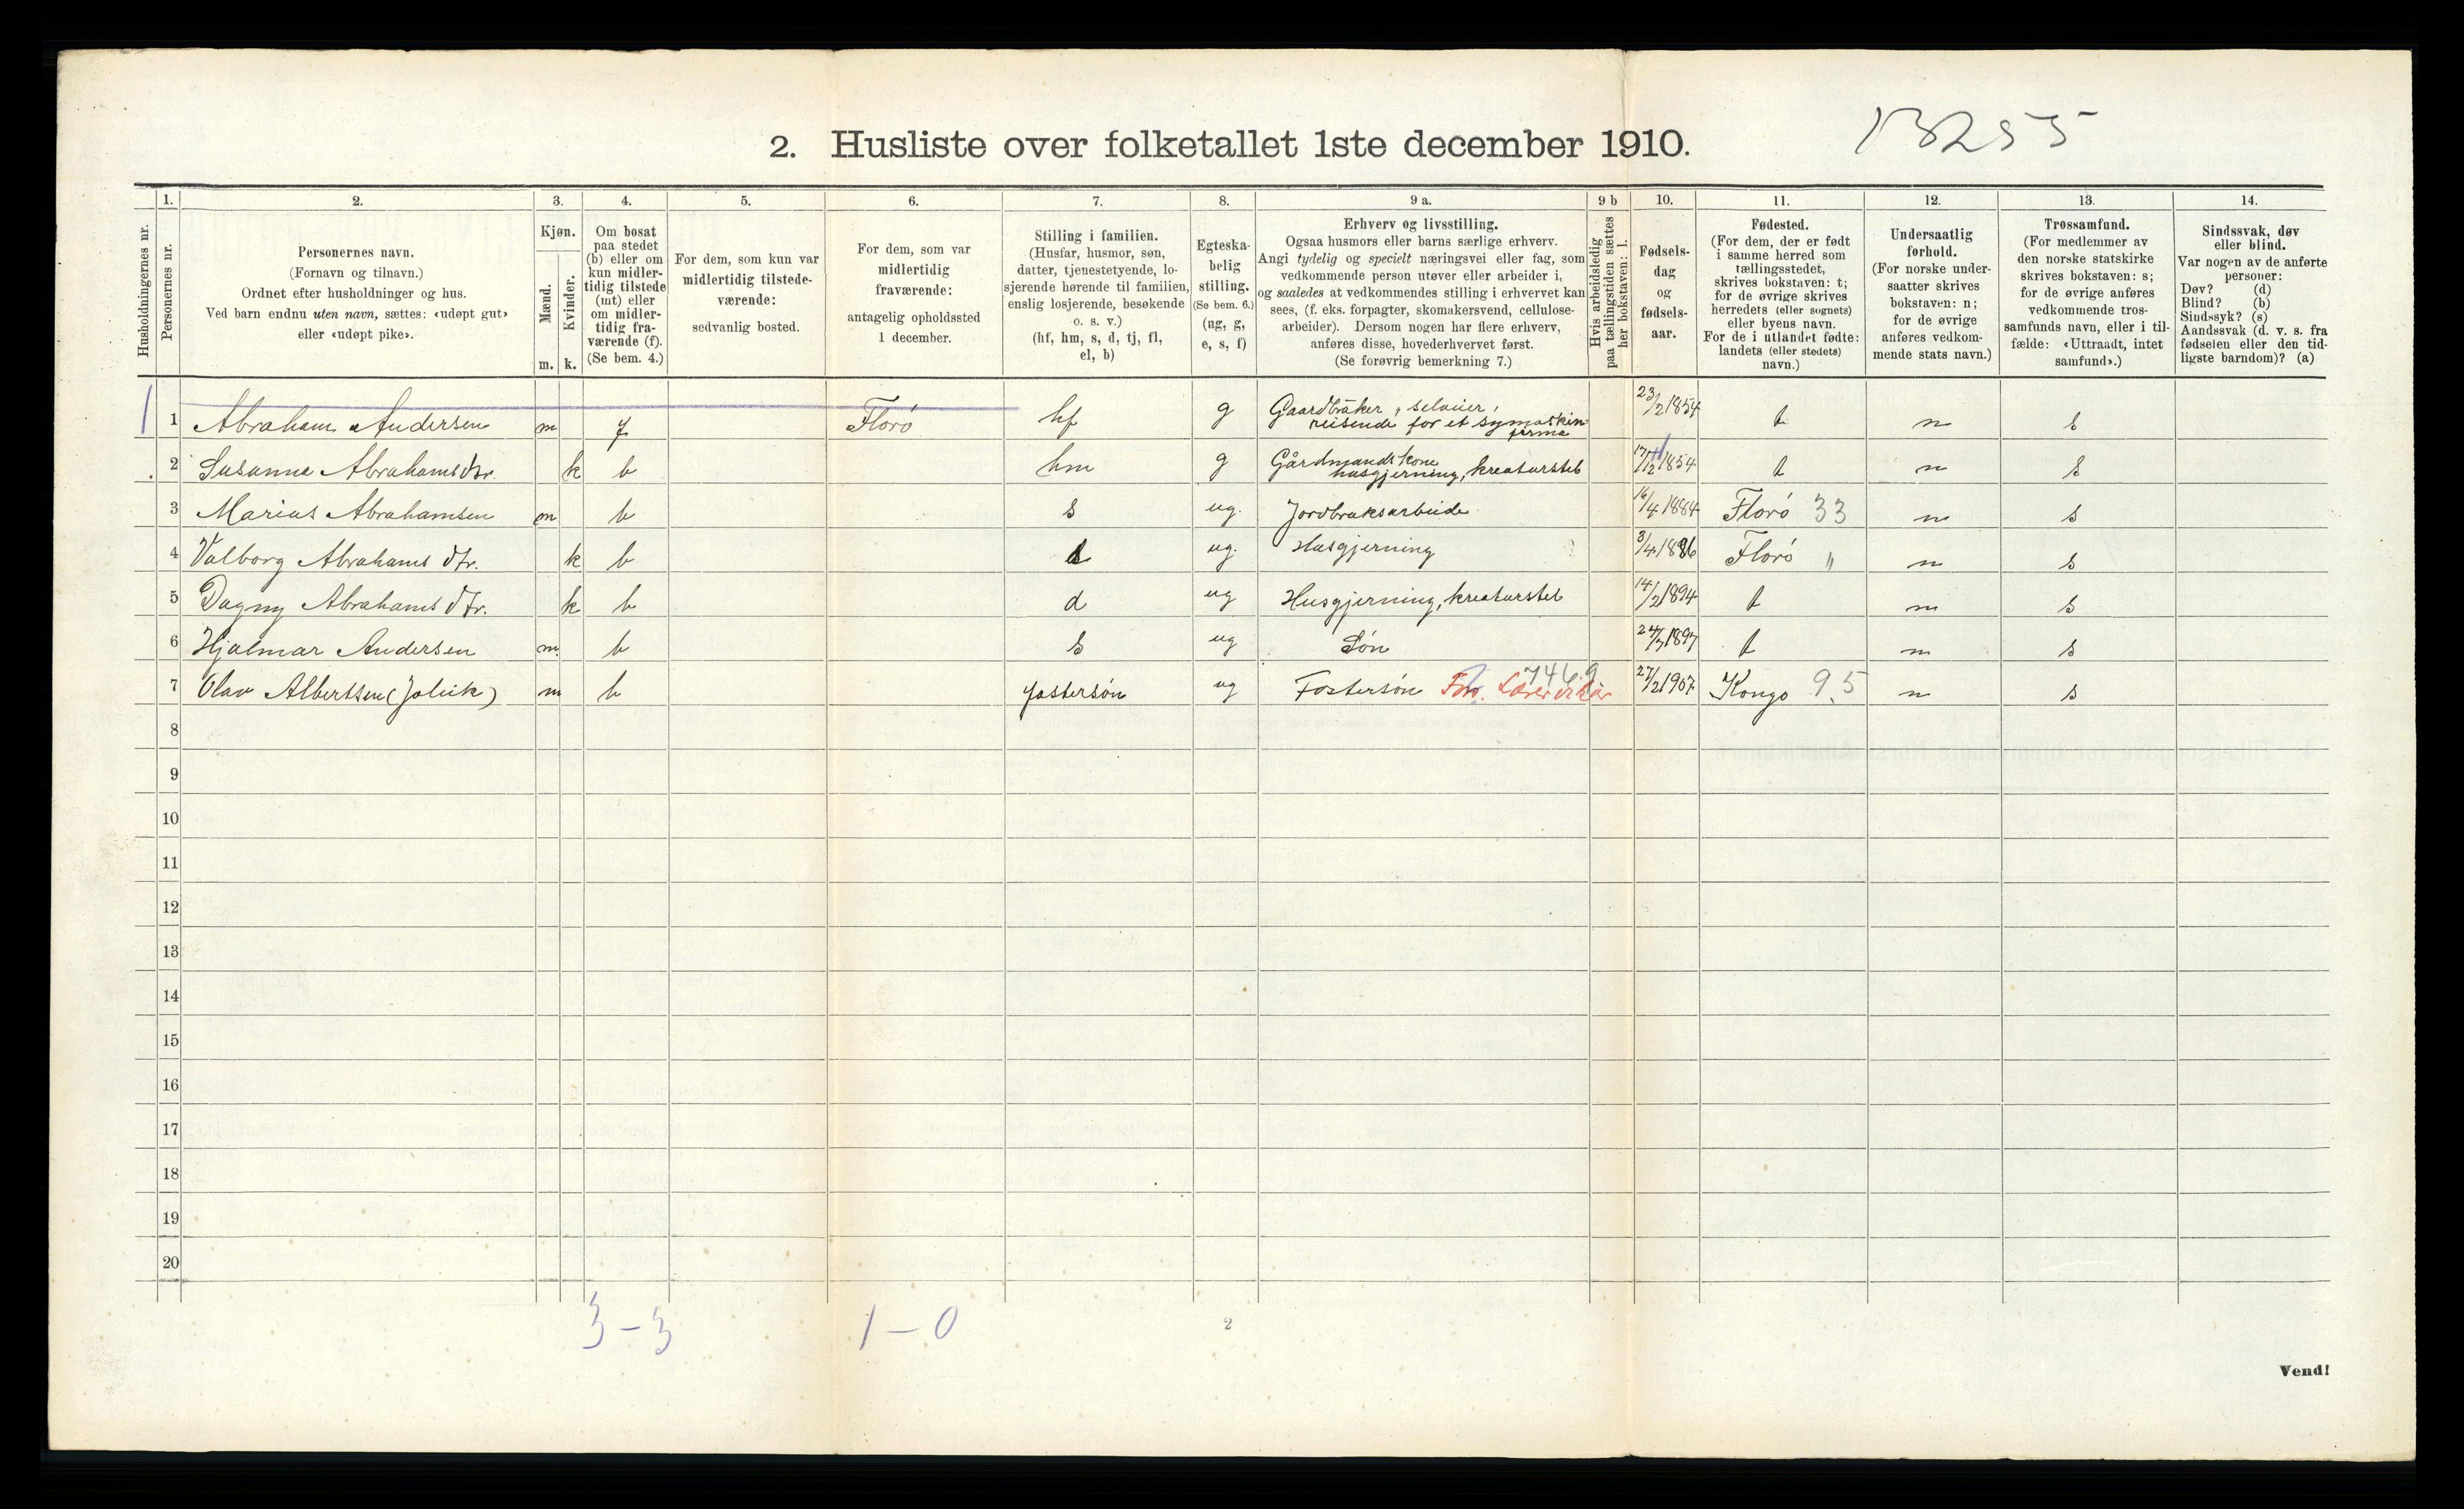 2. Husliste over folketallet 1ste december 1910.
13255
Husholdningernes nr.
1. Personernes nr.
2. Personernes navn.
(Fornavn og tilnavn.)
Ordnet efter husholdninger og hus.
Ved barn endnu uten navn, sættes: «udøpt gut»
eller «udøpt pike».
3. Kjøn.
Mænd. m.
Kvinder. k.
4. Om bosat
paa stedet
(b) eller om
kun midler-
tidig tilstede
(mt) eller
om midler-
tidig fra-
værende (f).
(Se bem. 4.)
5. For dem, som kun var
midlertidig tilstede-
værende:
sedvanlig bosted.
6. For dem, som var
midlertidig
fraværende:
antagelig opholdssted
1 december.
7. Stilling i familien.
(Husfar, husmor, søn,
datter, tjenestetyende, lo-
sjerende hørende til familien,
enslig losjerende, besøkende
o. s. v.)
(hf, hm, s, d, tj, fl,
el, b)
8. Egteska-
belig
stilling.
(Se bem. 6.)
(ug, g,
e, s, f)
9 a. Erhverv og livsstilling.
Ogsaa husmors eller barns særlige erhverv.
Angi tydelig og specielt næringsvei eller fag, som
vedkommende person utøver eller arbeider i,
og saaledes at vedkommendes stilling i erhvervet kan
sees, (f. eks. forpagter, skomakersvend, cellulose-
arbeider). Dersom nogen har flere erhverv,
anføres disse, hovederhvervet først.
(Se forøvrig bemerkning 7.)
9 b Hvis arbeidsledig
paa tællingstiden sættes
her bokstaven: l.
10. Fødsels-
dag
og
fødsels-
aar.
11. Fødested.
(For dem, der er født
i samme herred som
tællingsstedet,
skrives bokstaven: t;
for de øvrige skrives
herredets (eller sognets)
eller byens navn.
For de i utlandet fødte:
landets (eller stedets)
navn.)
12. Undersaatlig
forhold.
(For norske under-
saatter skrives
bokstaven: n;
for de øvrige
anføres vedkom-
mende stats navn.)
13. Trossamfund.
(For medlemmer av
den norske statskirke
skrives bokstaven: s;
for de øvrige anføres
vedkommende tros-
samfunds navn, eller i til-
fælde: «Uttraadt, intet
samfund».)
14. Sindssvak, døv
eller blind.
Var nogen av de anførte
personer:
Døv? (d)
Blind? (b)
Sindssyk? (s)
Aandssvak (d. v. s. fra
fødselen eller den tid-
ligste barndom)? (a)
1 1 Abraham Andersen m f Florö hf g Gaardbruker, selveier,
reisende for et symaskin-
firma 23/2 1854 t n s
2 Susanna Abrahamsdtr. k b hm g Gårdmandskone
husgjerning, kreaturstel 17/12 1854 t n s
3 Marius Abrahamsen m b s ug. Jordbruksarbeide 16/4 1884 Florö 33 n s
4 Valborg Abrahams dtr. k b d ug. Husgjerning 3/4 1886 Florö " n s
5 Dagny Abrahams dtr. k b d ug Husgjerning, kreaturstel 14/2 1894 t n s
6 Hjalmar Andersen m. b s ug Sön 24/7 1897 t n s
7 Olav Albertsen (Jolük) m b fostersön ug Fostersön 746.9 27/2 1907 Kongo 95 n s
8
9
10
11
12
13
14
15
16
17
18
19
20
3-3 1-0
2
Vend!